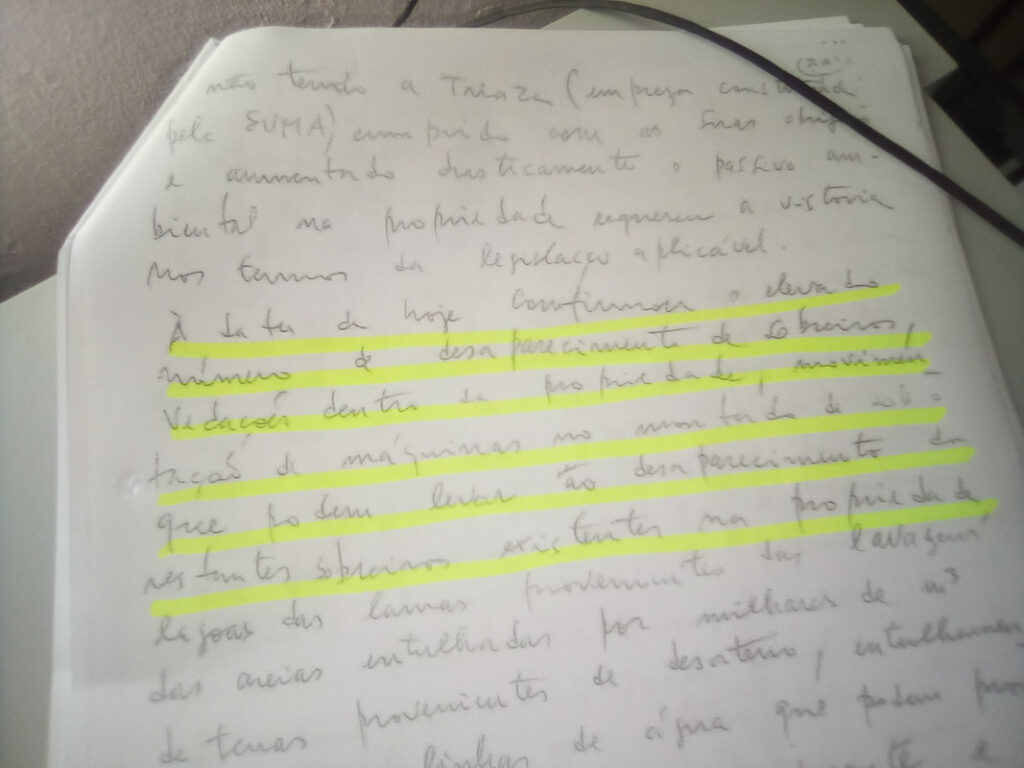 não tendo a Triaza (empresa constituida
pela SUMA) cumprido com as suas
e aumentado drasticamente o passivo am-
biental na propriedade requereu a vistoria
nos termos da legislação aplicável.
À data de hoje confirmou o elevado
número de desaparecimento de sobreiros,
vedações dentro da propriedade, movimen-
tação de máquinas no montado de
que podem levar ao desaparecimento dos
restantes sobreiros existentes na propriedade
lagoas das lamas provenientes das lavagens
das areias entulhadas por milhares de m³
de terras provenientes de desaterro,
linhas de água que podem